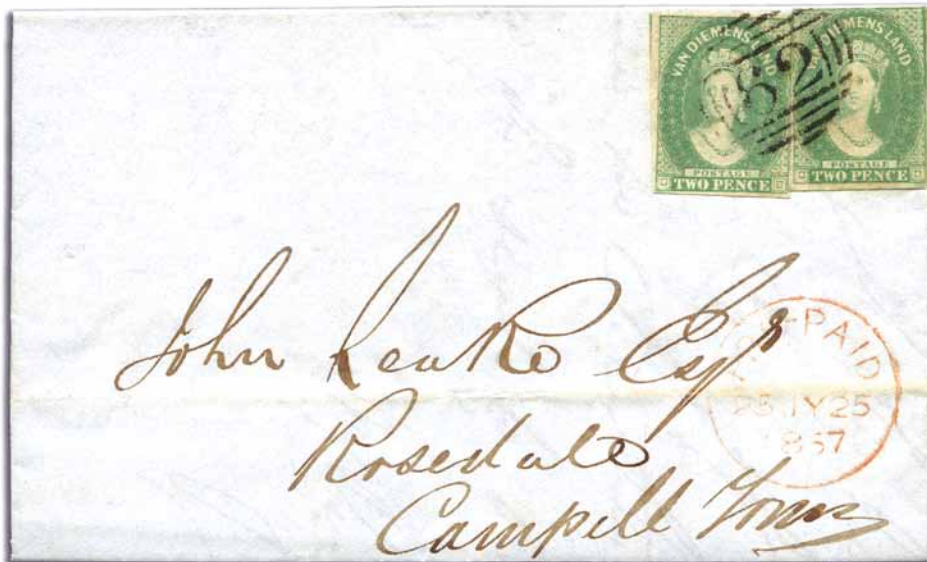 VAN DIEMENS LAND
POSTAGE
TWO PENCE
DIEMENS LAND
POSTAGE
TWO PENCE
82
John Leake Esqr
Rosedale
Campell Town
PAID
JY 25
1857